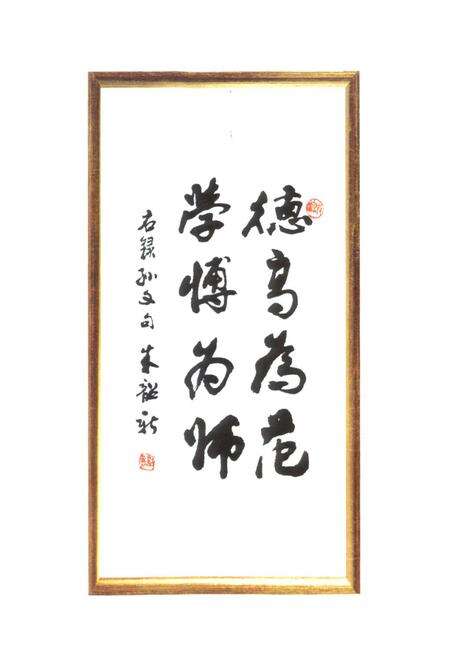 德高為范
学博为师
右録孙文句 朱韶新